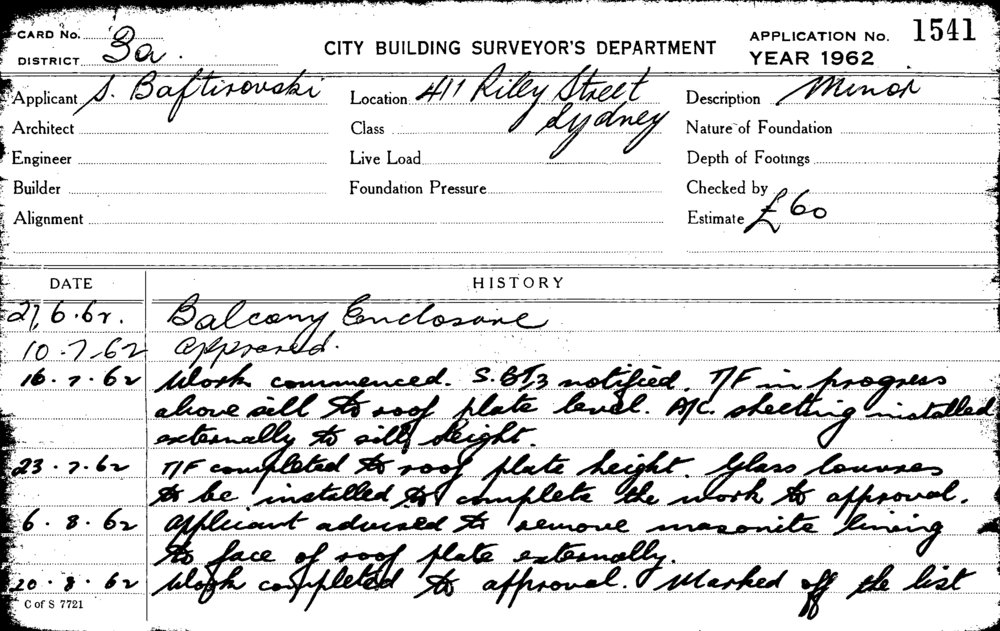 CARD No.
DISTRICT 3a.
CITY BUILDING SURVEYOR'S DEPARTMENT
APPLICATION No. 1541
YEAR 1962
Applicant S. Baftirovski
Location 411 Rilly Street
Sydney
Description Minor
Architect
Class
Nature of Foundation
Engineer
Live Load
Depth of Footings
Builder
Foundation Pressure
Checked by
Alignment
Estimate £60
DATE HISTORY
27.6.62. Balcony Enclosure
10.7.62 approved.
16.7.62 Work commenced. notified. T/F in progress
above sill to roof plate level. A/C. sheeting installed
externally to sill height.
23.7.62 T/F completed to roof plate height. Glass louvres
to be installed to complete the work to approval.
6.8.62 Applicant advised to remove masonite lining
to face of roof plate externally.
20.8.62 Work completed to approval. Marked off the list
C of S 7721